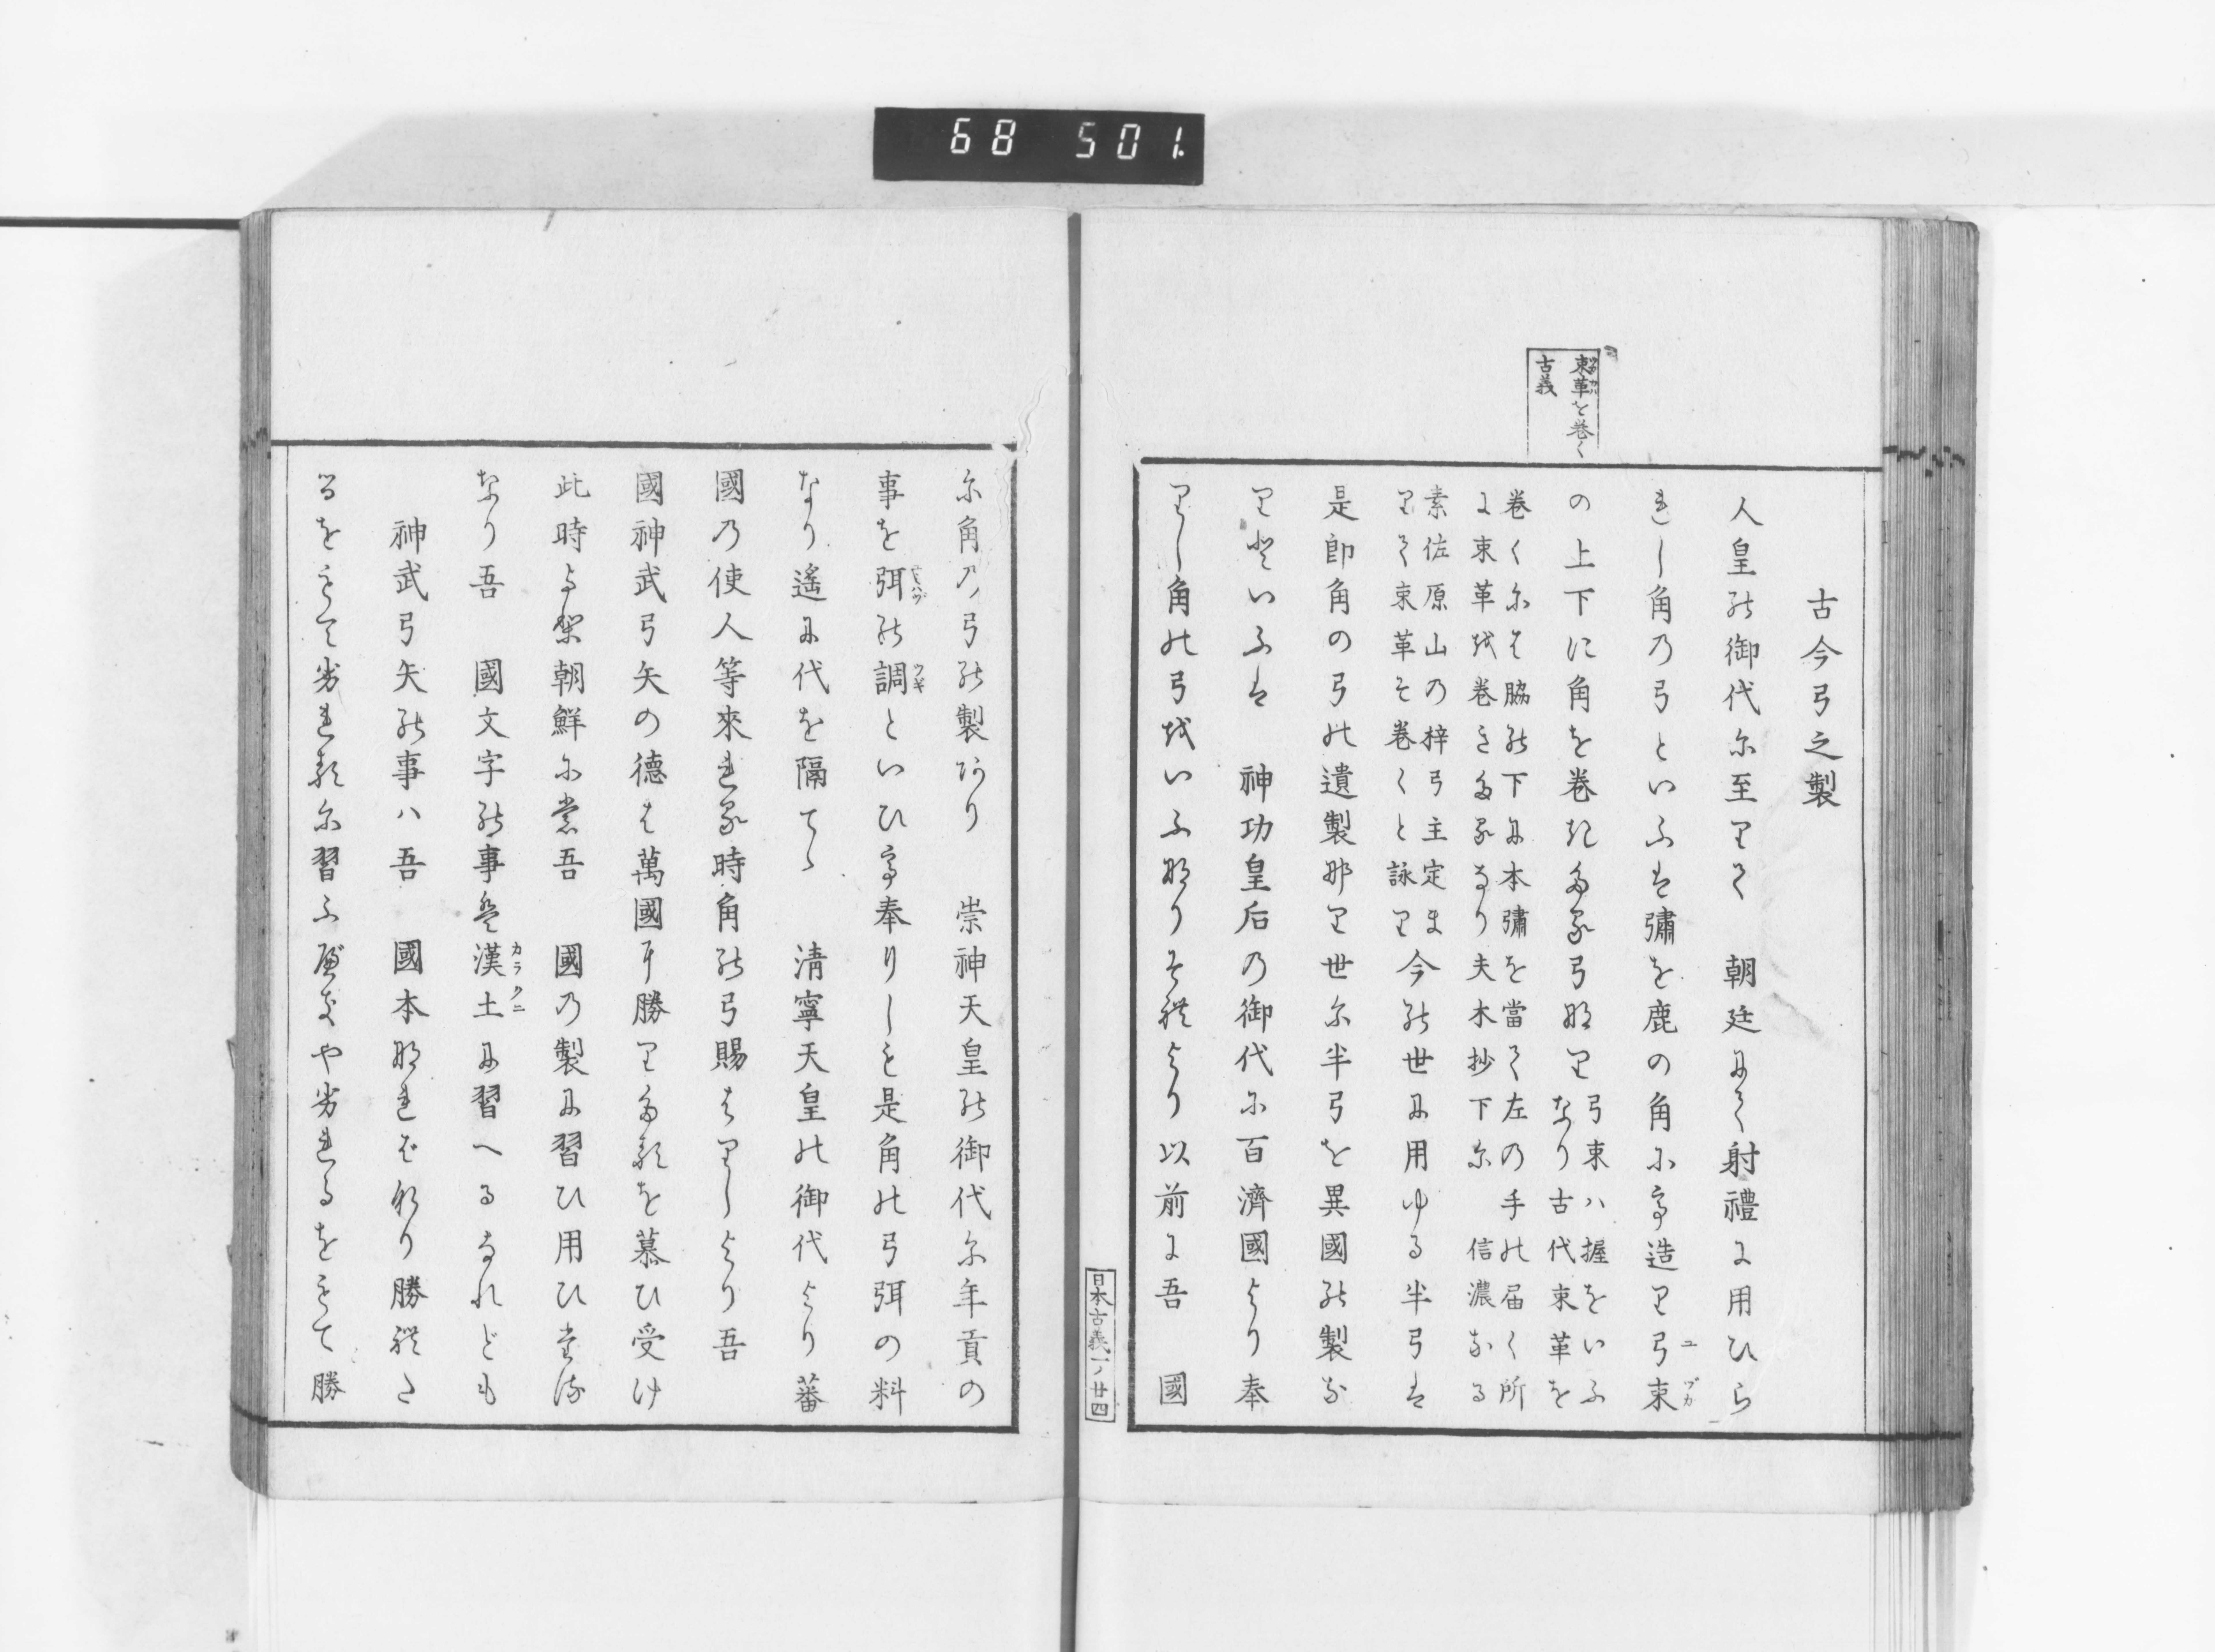 68 501.
束革を巻く
古義
古今弓之製
人皇の御代に至りて 朝廷にて射禮に用ひら
れし角の弓といふは彇を鹿の角にて造り弓束
の上下に角を巻きたる弓なり弓束ハ握をいふ
なり古代束革を
巻くにも脇の下に本彇を當て左の手の届く所
に束革を巻きたるなり夫木抄下に信濃なる
素佐原山の梓弓主定ま
りて束革そ巻くと詠り今の世に用ゆる半弓は
是即角の弓の遺製なり世に半弓を異國の製な
りといふは 神功皇后の御代に百濟國より奉
りし角の弓をいふなりそれより以前に吾 國
に角の弓の製あり 崇神天皇の御代に年貢の
事を弭の調といひて奉りしも是角の弓弭の料
なり遙に代を隔てゝ 清寧天皇の御代より蕃
國の使人等來れる時角の弓賜はりしより吾
國神武弓矢の德は萬國に勝りたるを慕ひ受け
此時より朝鮮に吾 國の製に習ひ用ひ
なり吾 國文字の事は漢土に習へるなれども
神武弓矢の事ハ吾 國本なればなり勝れた
るをもて劣れるに習ふべきや劣れるをもて勝
日本古義一ノ廿四